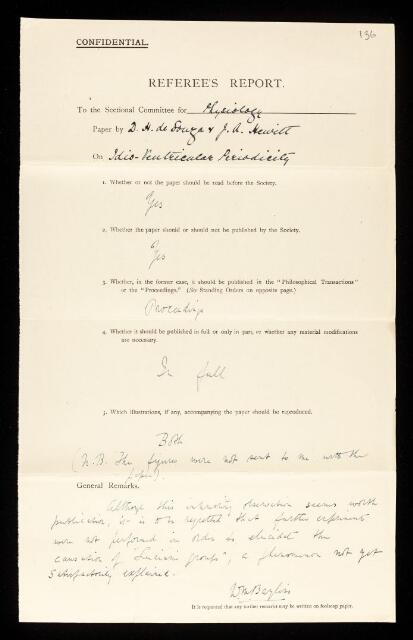 136
CONFIDENTIAL.
REFEREE'S REPORT.
To the Sectional Committee for Physiology
Paper by D. H. de Souza & J. A. Hewitt
On Idio-Ventricular Periodicity
1. Whether or not the paper should be read before the Society.
Yes
2. Whether the paper should or should not be published by the Society.
Yes
3. Whether, in the former case, it should be published in the "Philosophical Transactions"
or the "Proceedings." (See Standing Orders on opposite page.)
Proceedings
4. Whether it should be published in full or only in part, or whether any material modifications
are necessary.
In full
5. Which illustrations, if any, accompanying the paper should be reproduced.
Both
(N.B. The figures were not sent to me with the
paper).
General Remarks.
Although this interesting observation seems worth
publication, it is to be regretted that further experiments
were not performed in order to elucidate the
causation of "Luciani groups", a phenomenon not yet
satisfactorily explained.
W M Bayliss
It is requested that any further remarks may be written on foolscap paper.